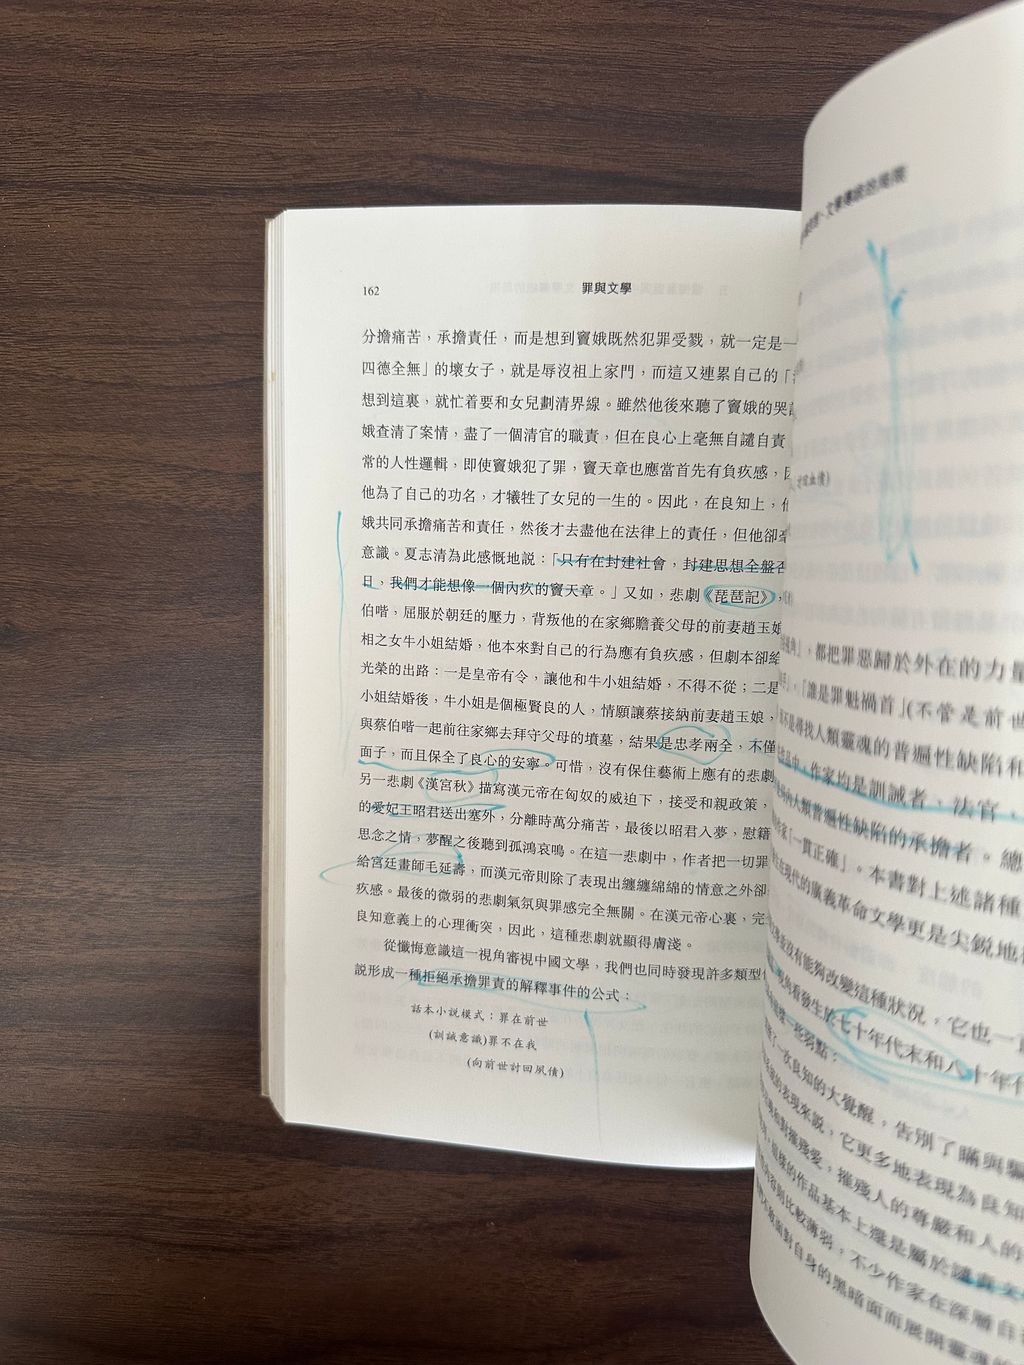 162
罪與文學
分擔痛苦，承擔責任，而是想到竇娥既然犯罪受戮，就一定是一
四德全無」的壞女子，就是辱沒祖上家門，而這又連累自己的「
想到這裏，就忙着要和女兒劃清界線。雖然他後來聽了竇娥的哭
娥查清了案情，盡了一個清官的職責，但在良心上毫無自譴自責
常的人性邏輯，即使竇娥犯了罪，竇天章也應當首先有負疚感，
他為了自己的功名，才犧牲了女兒的一生的。因此，在良知上，
娥共同承擔痛苦和責任，然後才去盡他在法律上的責任，但他卻
意識。夏志清為此感慨地説：「只有在封建社會，封建思想全盤
日，我們才能想像一個內疚的竇天章。」又如，悲劇《琵琶記》，
伯喈，屈服於朝廷的壓力，背叛他的在家鄉贍養父母的前妻趙玉娘
相之女牛小姐結婚，他本來對自己的行為應有負疚感，但劇本卻給
光榮的出路：一是皇帝有令，讓他和牛小姐結婚，不得不從；二是
小姐結婚後，牛小姐是個極賢良的人，情願讓蔡接納前妻趙玉娘，
與蔡伯喈一起前往家鄉去拜守父母的墳墓，結果是忠孝兩全，不僅
面子，而且保全了良心的安寧。可惜，沒有保住藝術上應有的悲劇
另一悲劇《漢宮秋》描寫漢元帝在匈奴的威迫下，接受和親政策，
的愛妃王昭君送出塞外，分離時萬分痛苦，最後以昭君入夢，慰籍
思念之情，夢醒之後聽到孤鴻哀鳴。在這一悲劇中，作者把一切罪
給宮廷畫師毛延壽，而漢元帝則除了表現出纏纏綿綿的情意之外卻
疚感。最後的微弱的悲劇氣氛與罪感完全無關。在漢元帝心裏，完
良知意義上的心理衝突，因此，這種悲劇就顯得膚淺。
從懺悔意識這一視角審視中國文學，我們也同時發現許多類型
説形成一種拒絕承擔罪責的解釋事件的公式：
話本小説模式：罪在前世
(訓誡意識)罪不在我
(向前世討回夙債)
文學傳統的局限
」，都把罪惡歸於外在的力量
」，「誰是罪魁禍首」(不管是前世
不是尋找人類靈魂的普遍性缺陷和
作家均是訓誡者、法官，
人類普遍性缺陷的承擔者。總
「一貫正確」。本書對上述諸種
在現代的廣義革命文學更是尖鋭地
沒有能夠改變這種狀況，它也一
看發生於七十年代末和八十年代
一些弱點：
了一次良知的大覺醒，告別了瞞與騙
的表現來説，它更多地表現為良知
對摧殘愛，摧殘人的尊嚴和人的
這樣的作品基本上還是屬於譴責文
比較薄弱，不少作家在深層自
面對自身的黑暗面而展開靈魂的